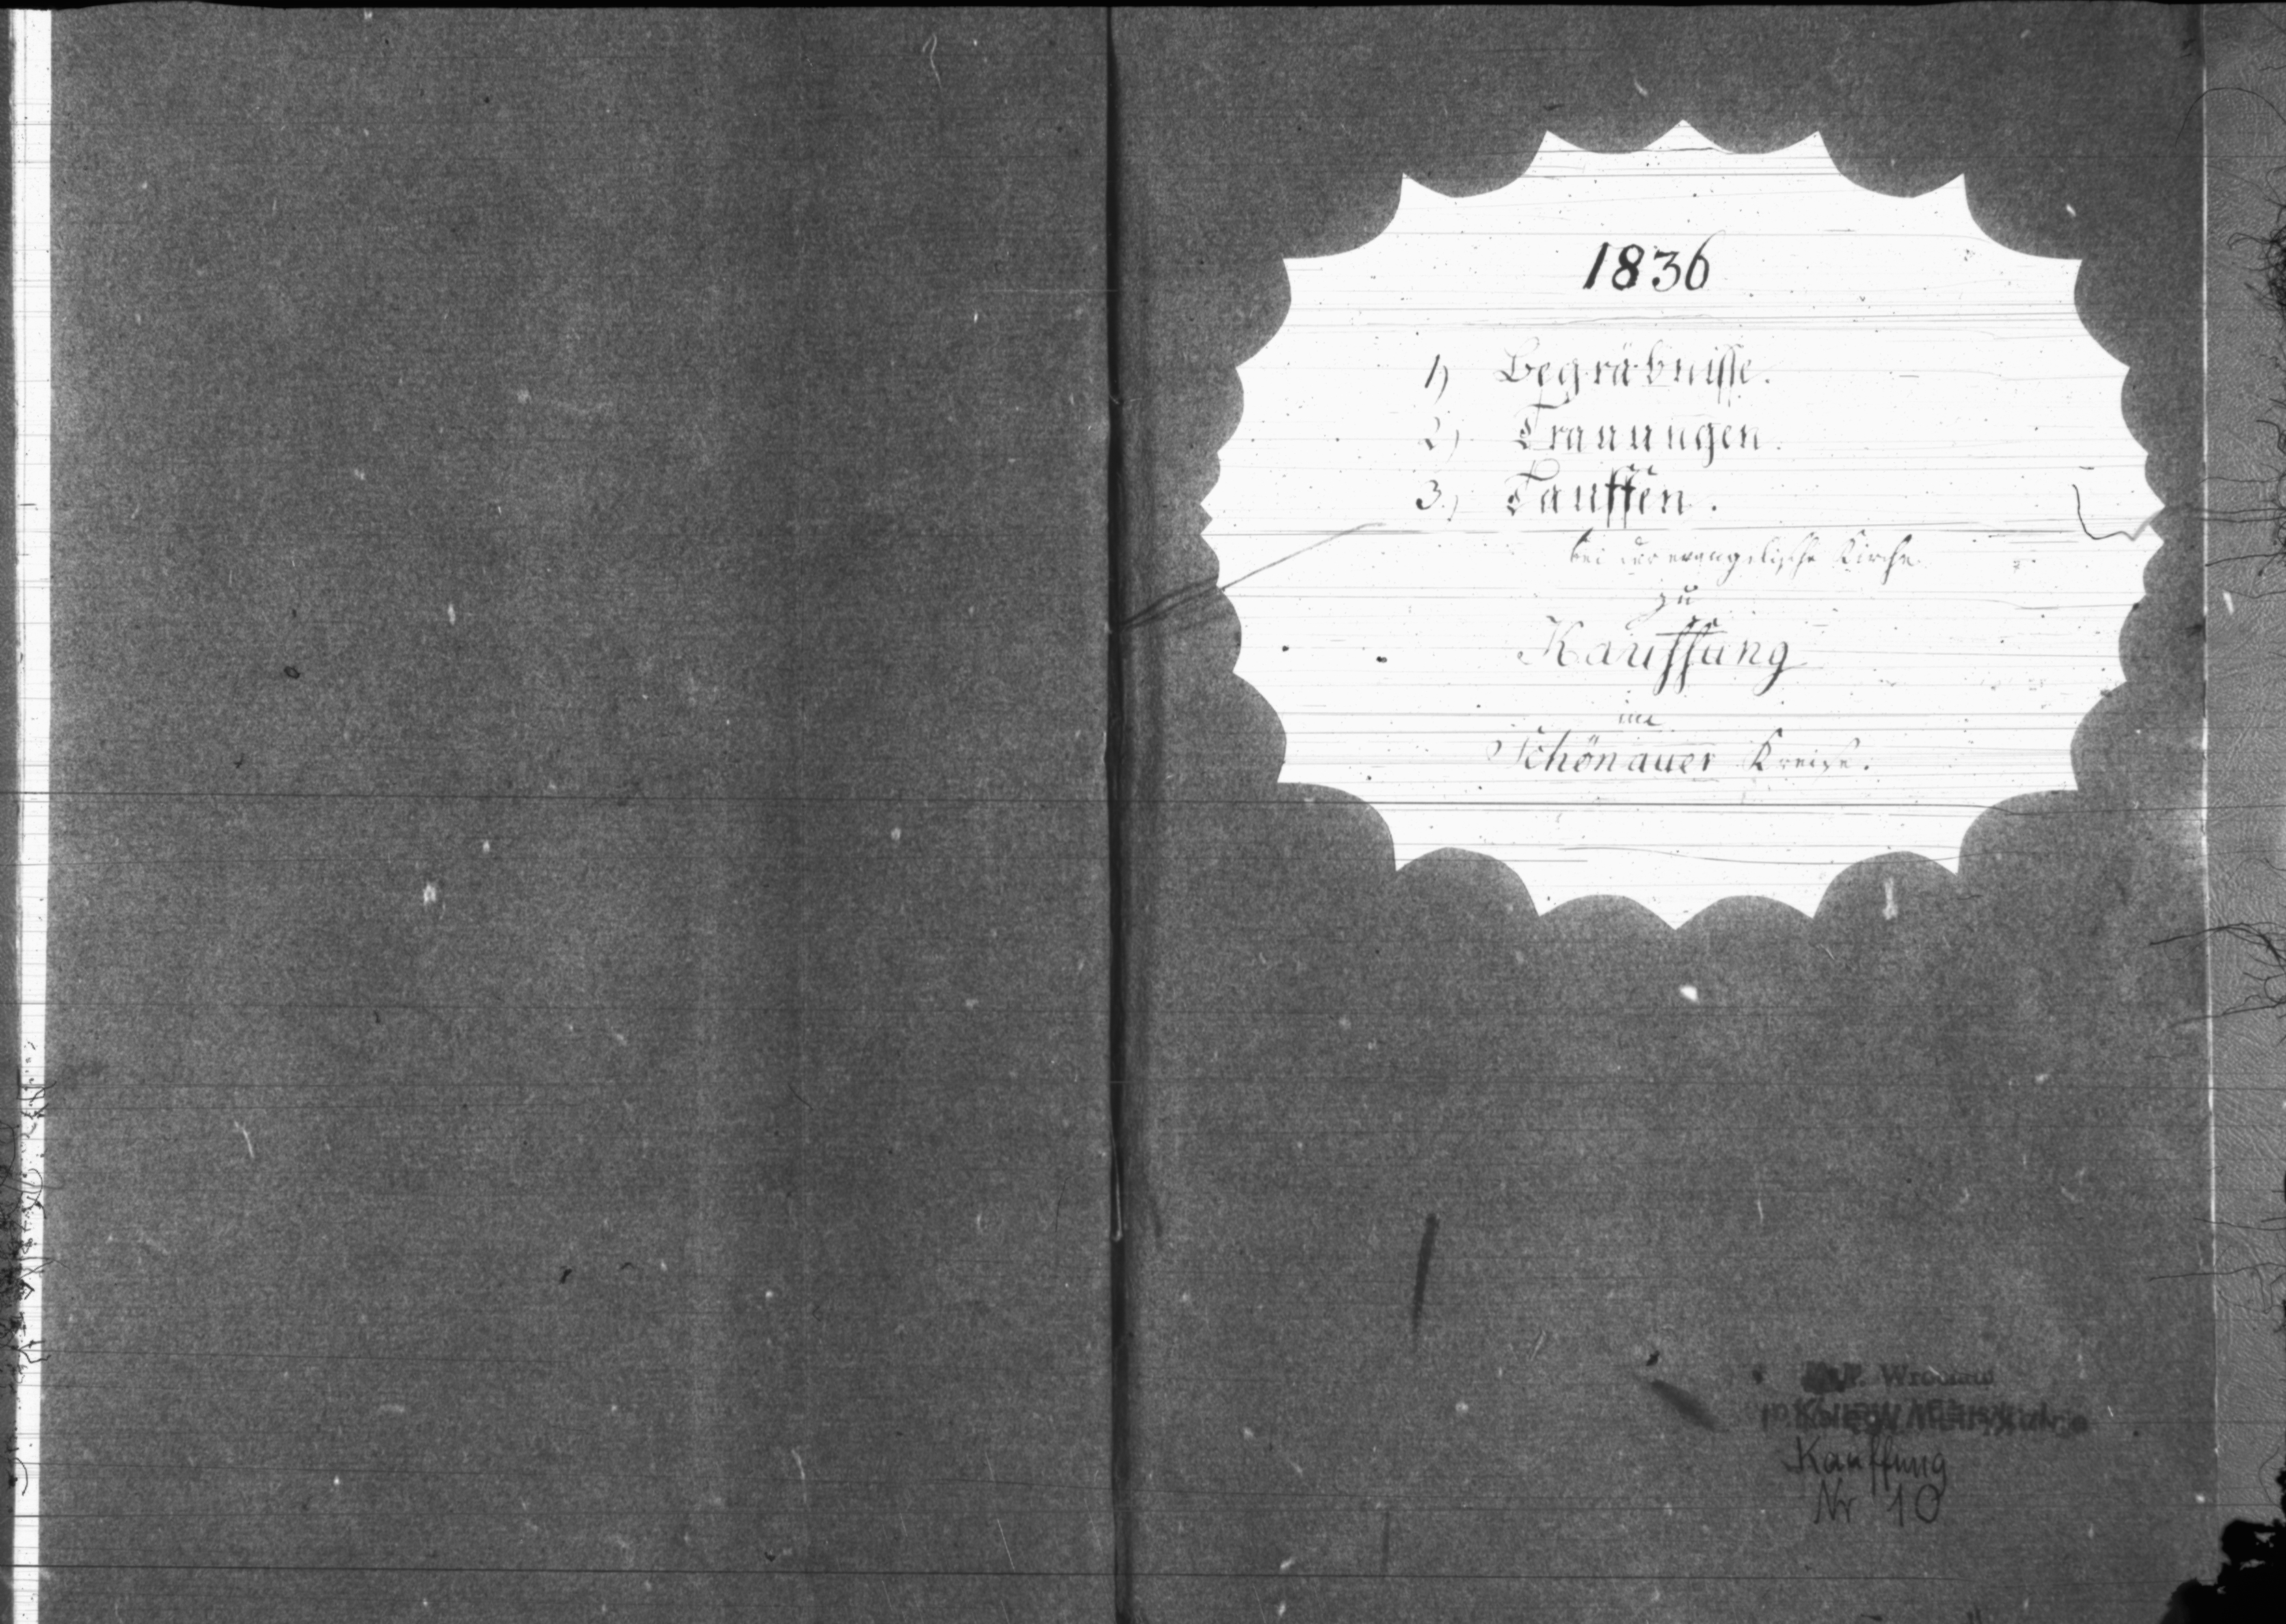 1836
1) Begräbnisse.
2) Trauungen.
3.) Tauffen.
bei der evangelische Kirche
zu
Kauffung
im
Schönauer Kreise.
Wrocław
Kauffung
Nr 10